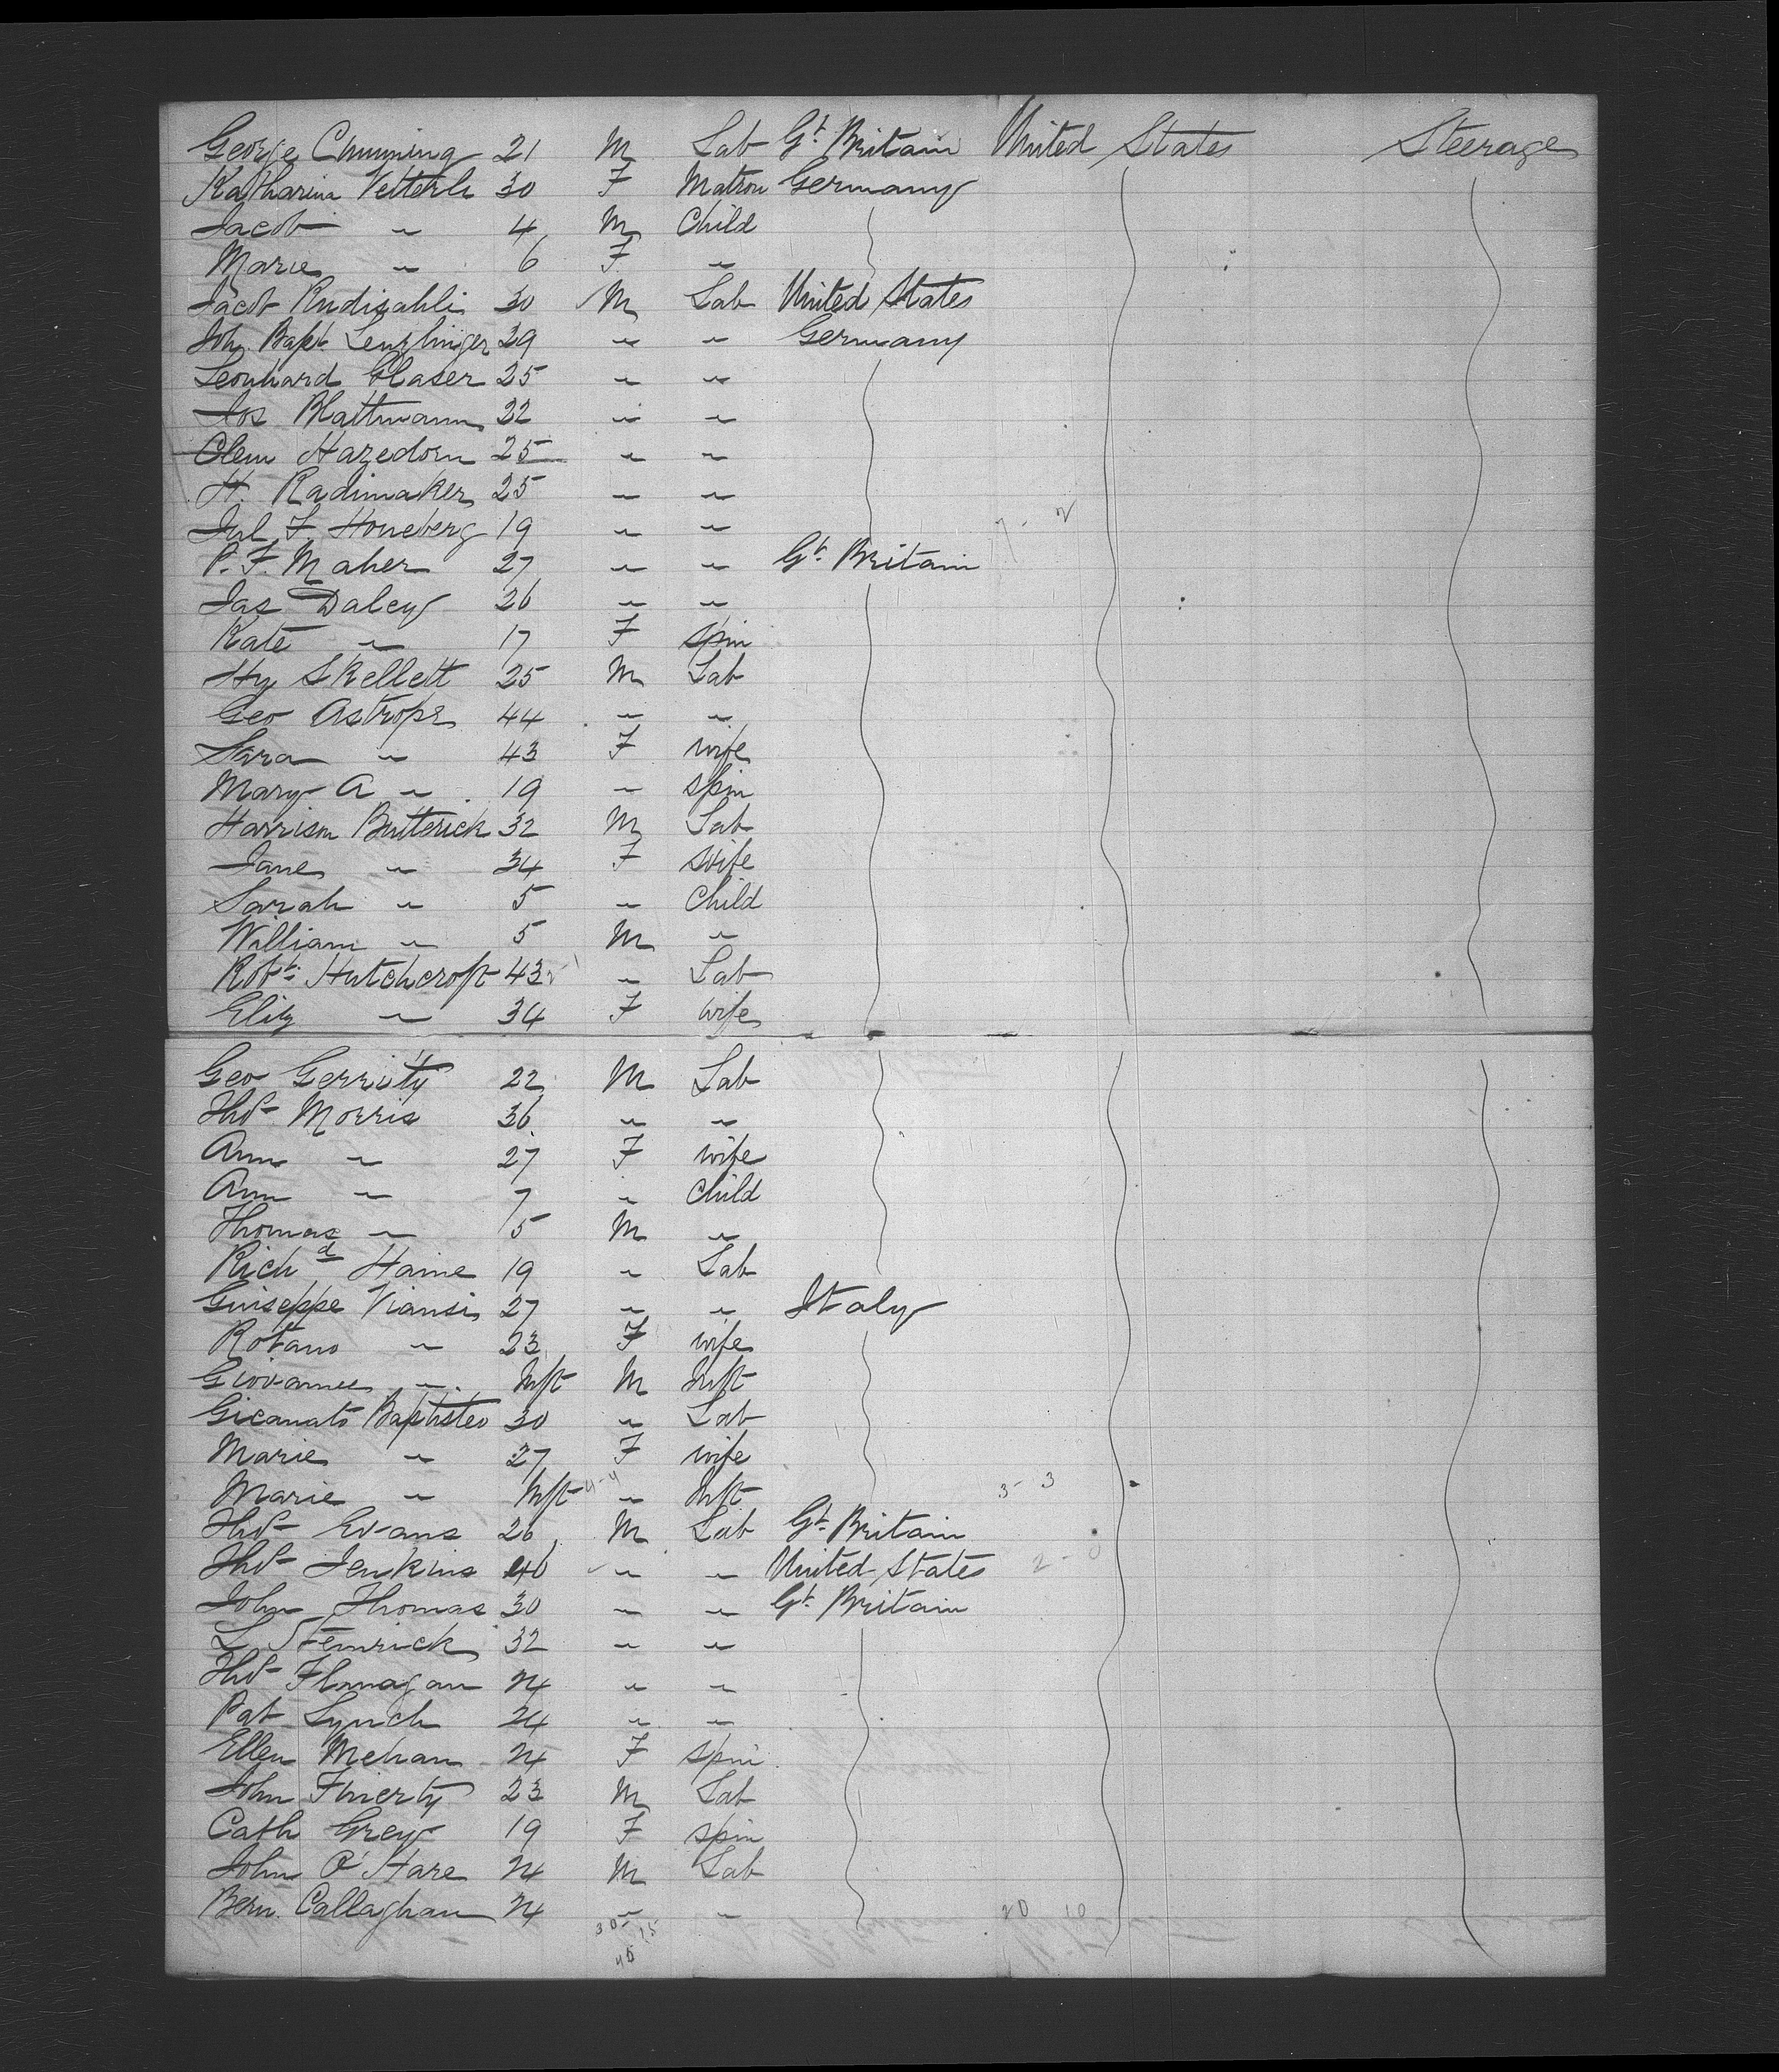 George Cumming 21 M Lab Gt. Britain United States Steerage
Katharina Vetterli 30 F Matron Germany
Jacob " 4 M Child
Marie " 6 F "
Jacob Rudisahli 30 M Lab United States
Joh. Bapt. Lenzlinger 29 " " Germany
Leonhard Glaser 25 " "
Jos Blattmann 22 " "
Clem Hazedorn 25 " "
H. Radimaker 25 " "
Jul F. Honeberg 19 " "
P. F. Maher 27 " " Gt. Britain
Jas Daley 26 " "
Kate " 17 F Spin
Hy Skellett 25 M Lab
Geo Astrope 44 " "
Sara " 43 F wife
Mary A " 19 " spin
Harrison Butterick 32 M Lab
Jane " 34 F wife
Sarah " 5 " Child
William " 5 M "
Robt. Hutchcroft 43 " Lab
Eliz " 34 F wife
Geo Gerrity 22 M Lab
Thos Morris 36 " "
Ann " 27 F wife
Ann " 7 " Child
Thomas " 5 M "
Richd Haine 19 " Lab
Guiseppe Viansi 27 " " Italy
Rotano " 23 F wife
Giovannie " Inft M Inft
Gicanato Baptisteo 30 " Lab
Marie " 27 F wife
Marie " Inft 4-4 " Inft 3-3
Thos Evans 26 M Lab Gt. Britain
Thos Jenkins 46 " " United States 2-0
John Thomas 30 " " Gt. Britain
L Stemrick 32 " "
Thos Flanagan 24 " "
Pat Lynch 24 " "
Ellen Mehan 24 F spin
John Finerty 23 M Lab
Cath Grey 19 F spin
John O'Hare 24 M Lab
Bern. Callaghan 24 " " 20 10
30-15
45